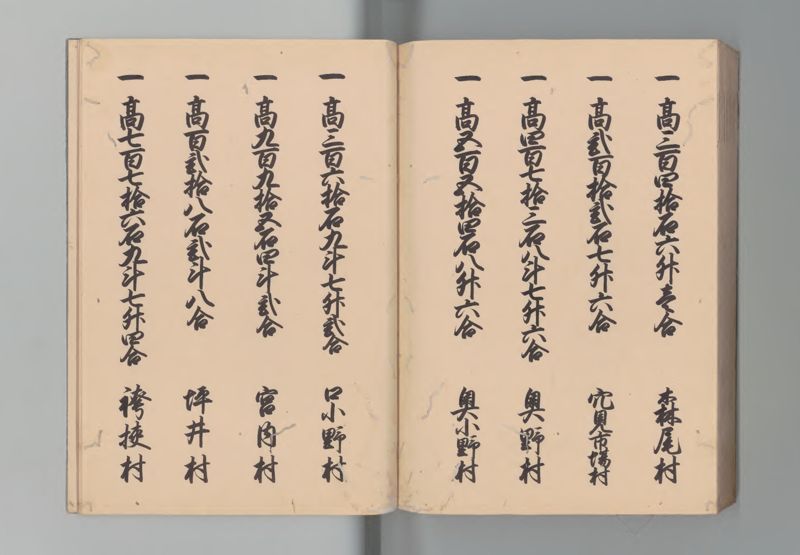 一 高三百四拾石六升壱合 森尾村
一 高弐百拾弐石七升六合 宍貝市場村
一 高四百七拾三石八斗七升六合 奥野村
一 高五百五拾四石八升六合 奥小野村
一 高三百六拾石九斗七升弐合 口小野村
一 高九百九拾五石四斗弐合 宮内村
一 高百弐拾八石弐斗八合 坪井村
一 高七百七拾六石九斗七升四合 袴狭村